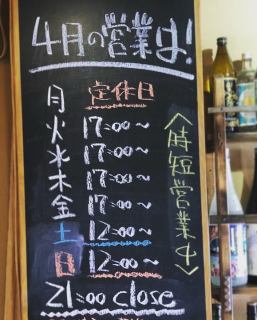 4月の営業は!
月 定休日
火 17:00〜
水 17:00〜
木 17:00〜
金 17:00〜
土 12:00〜
日 12:00〜
21:00 close
〈時短営業中〉